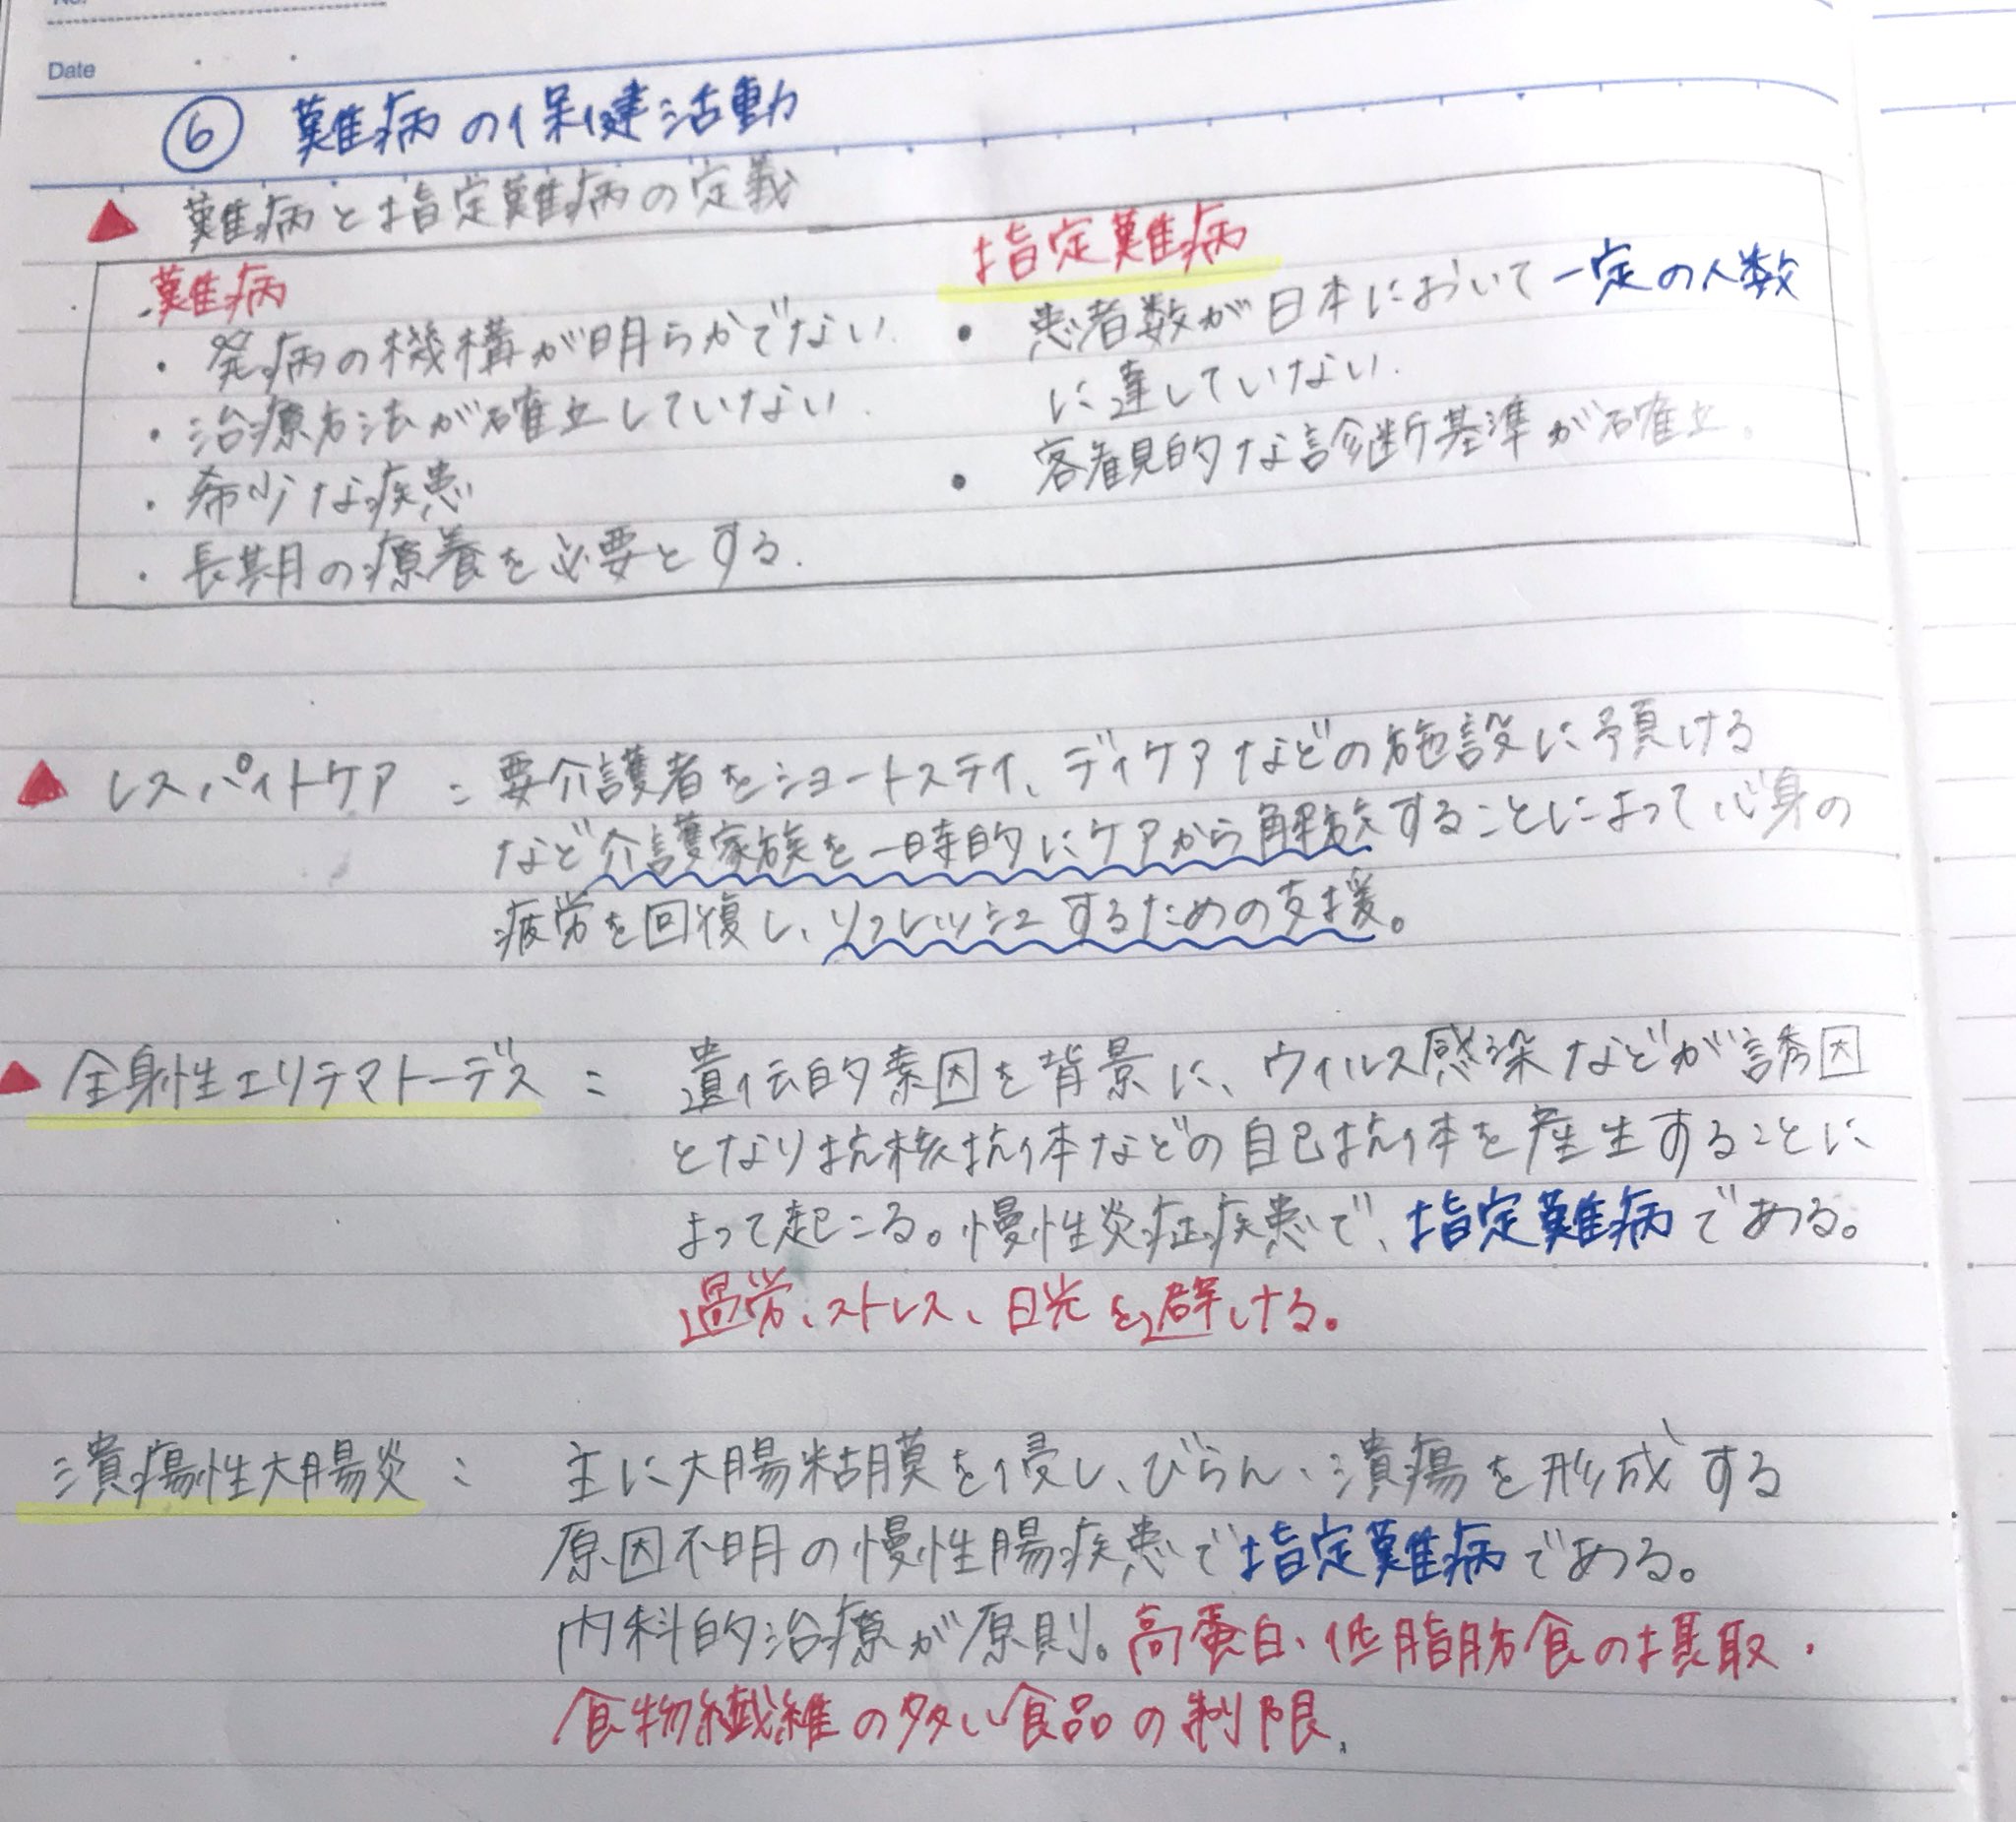 No.
Date
⑥ 難病の保健活動
▲ 難病と指定難病の定義
難病
・発病の機構が明らかでない.
・治療方法が確立していない.
・希少な疾患
・長期の療養を必要とする.
指定難病
・患者数が日本において一定の人数
に達していない.
・客観的な診断基準が確立。
▲ レスパイトケア : 要介護者をショートステイ、ディケアなどの施設に預ける
など介護家族を一時的にケアから解放することによって心身の
疲労を回復し、リフレッシュするための支援。
▲ 全身性エリテマトーデス = 遺伝的素因を背景に、ウィルス感染などが誘因
となり抗核抗体などの自己抗体を産生することに
よって起こる。慢性炎症疾患で、指定難病である。
過労、ストレス、日光を避ける。
潰瘍性大腸炎 : 主に大腸粘膜を侵し、びらん、潰瘍を形成する
原因不明の慢性腸疾患で指定難病である。
内科的治療が原則。高蛋白、低脂肪食の摂取・
食物繊維の多い食品の制限.